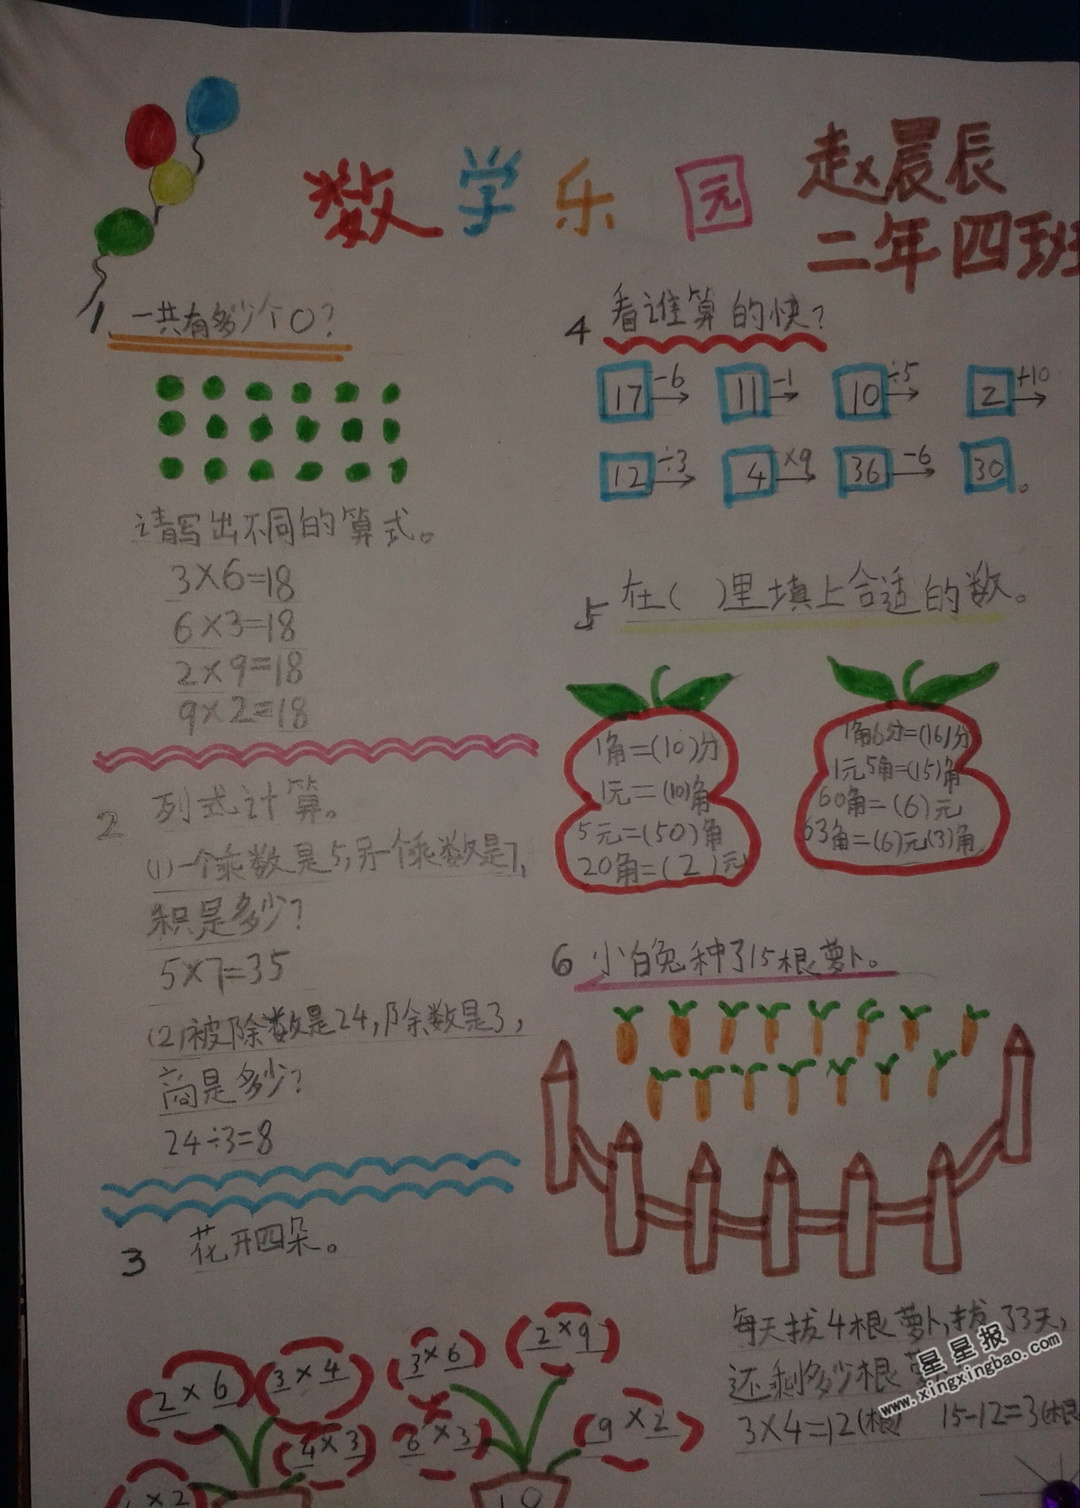 数学乐园
赵晨辰
二年四班
1 一共有多少个○?
请写出不同的算式。
3×6=18
6×3=18
2×9=18
9×2=18
2 列式计算。
(1)一个乘数是5,另一个乘数是7,
积是多少?
5×7=35
(2)被除数是24,除数是3,
商是多少?
24÷3=8
3 花开四朵。
2×6 3×4 3×6 2×9
4×3 6×3 9×2
×2
4 看谁算的快?
17 -6 11 -1 10 ÷5 2 +10
12 ÷3 4 ×9 36 -6 30。
5 在( )里填上合适的数。
1角=(10)分
1元=(10)角
5元=(50)角
20角=(2)元
1角6分=(16)分
1元5角=(15)角
60角=(6)元
63角=(6)元(3)角
6 小白兔种了15根萝卜。
每天拔4根萝卜,拔了3天,
还剩多少根
3×4=12(根) 15-12=3(根
星星报
www.xingxingbao.com